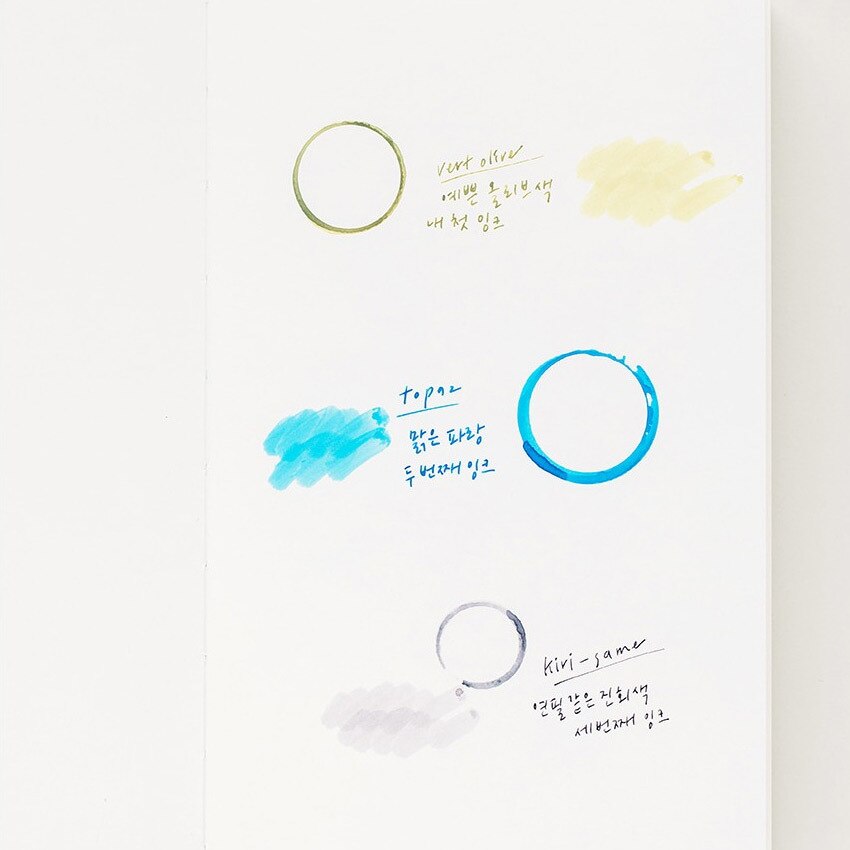 vert olive
예쁜 올리브색
내 첫 잉크
topaz
맑은 파랑
두번째 잉크
kiri-same
연필같은 진회색
세번째 잉크